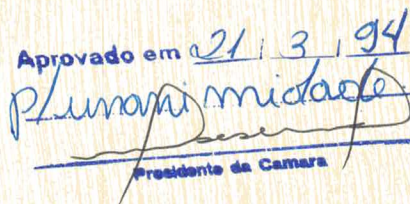 Aprovado em 21 / 3 / 94
p/unanimidade
Presidente da Camara